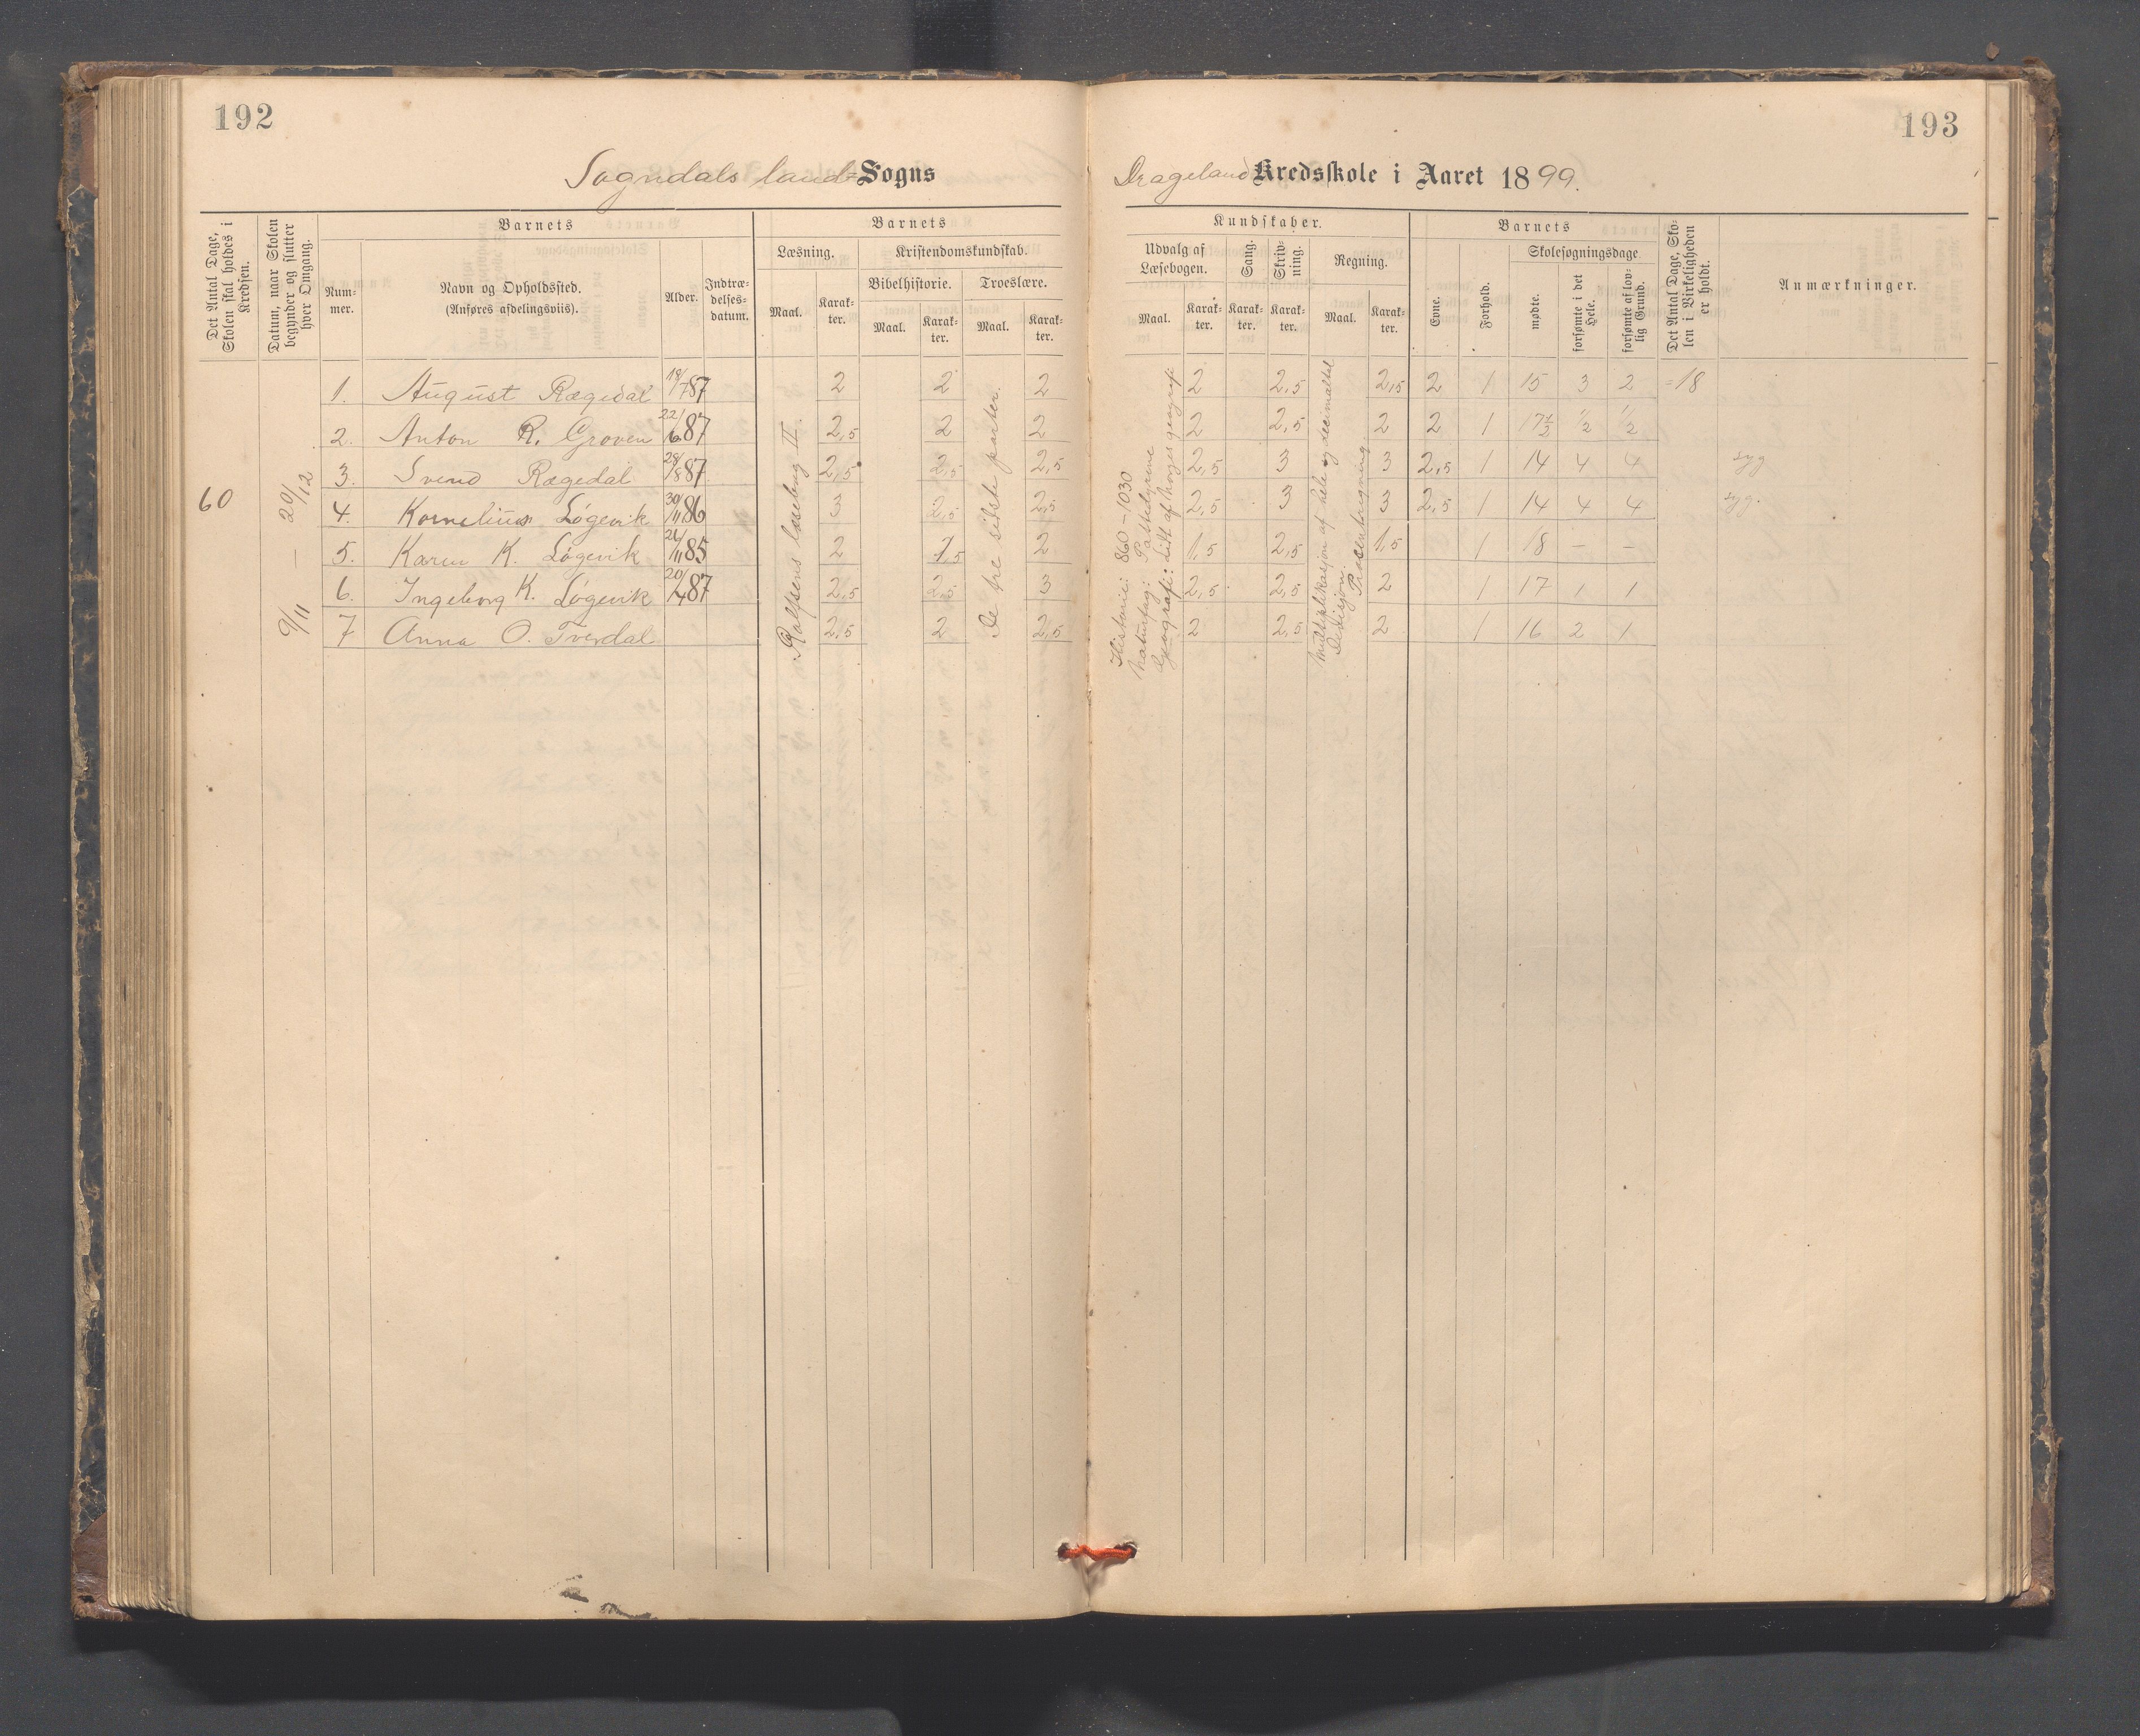 192
193
Sogndals land= Sogns
Drageland Kredsskole i Aaret 1899.
Det Antal Dage, Skolen skal holdes i Kredsen.
Datum, naar Skolen begynder og slutter hver Omgang.
Barnets
Nummer.
Navn og Opholdssted.
(Anføres afdelingsviis).
Alder.
Indtrædelsesdatum.
Barnets
Læsning.
Maal.
Karakter.
Kristendomskundskab.
Bibelhistorie.
Maal.
Karakter.
Troeslære.
Maal.
Karakter.
Kundskaber.
Udvalg af Læsebogen.
Maal.
Karakter.
Sang.
Karakter.
Skrivning.
Karakter.
Regning.
Maal.
Karakter.
Barnets
Evne.
Forhold.
Skolesøgningsdage
mødte.
forsømte i det Hele.
forsømte af lovlig Grund.
Det Antal Dage, Skolen i Virkeligheden er holdt.
Anmærkninger.
60
9/11 — 20/12
Rolfsens læsebog II.
De tre sidste parter.
Historie: 860–1030
Naturfag: Pattedyrene
Geografi: Litt af Norges geografi
Multiplikasjon af hele og decimaltal
Divisjon. Procentregning
1. August Rægedal 18/7 87 2 2 2 2 2,5 2,5 2 1 15 3 2 =18
2. Anton R. Groven 22/6 87 2,5 2 2 2 2,5 2 2 1 17½ ½ ½
3. Svend Rægedal 28/8 87 2,5 2,5 2,5 2,5 3 3 2,5 1 14 4 4 syg
4. Kornelius Løgevik 30/11 86 3 2,5 2,5 2,5 3 3 2,5 1 14 4 4 syg.
5. Karen K. Løgevik 26/11 85 2 1,5 2 1,5 2,5 1,5 1 18 – –
6. Ingeborg K. Løgevik 20/4 87 2,5 2,5 3 2,5 2,5 2 1 17 1 1
7 Anna O. Tverdal 2,5 2 2,5 2 2,5 2 1 16 2 1